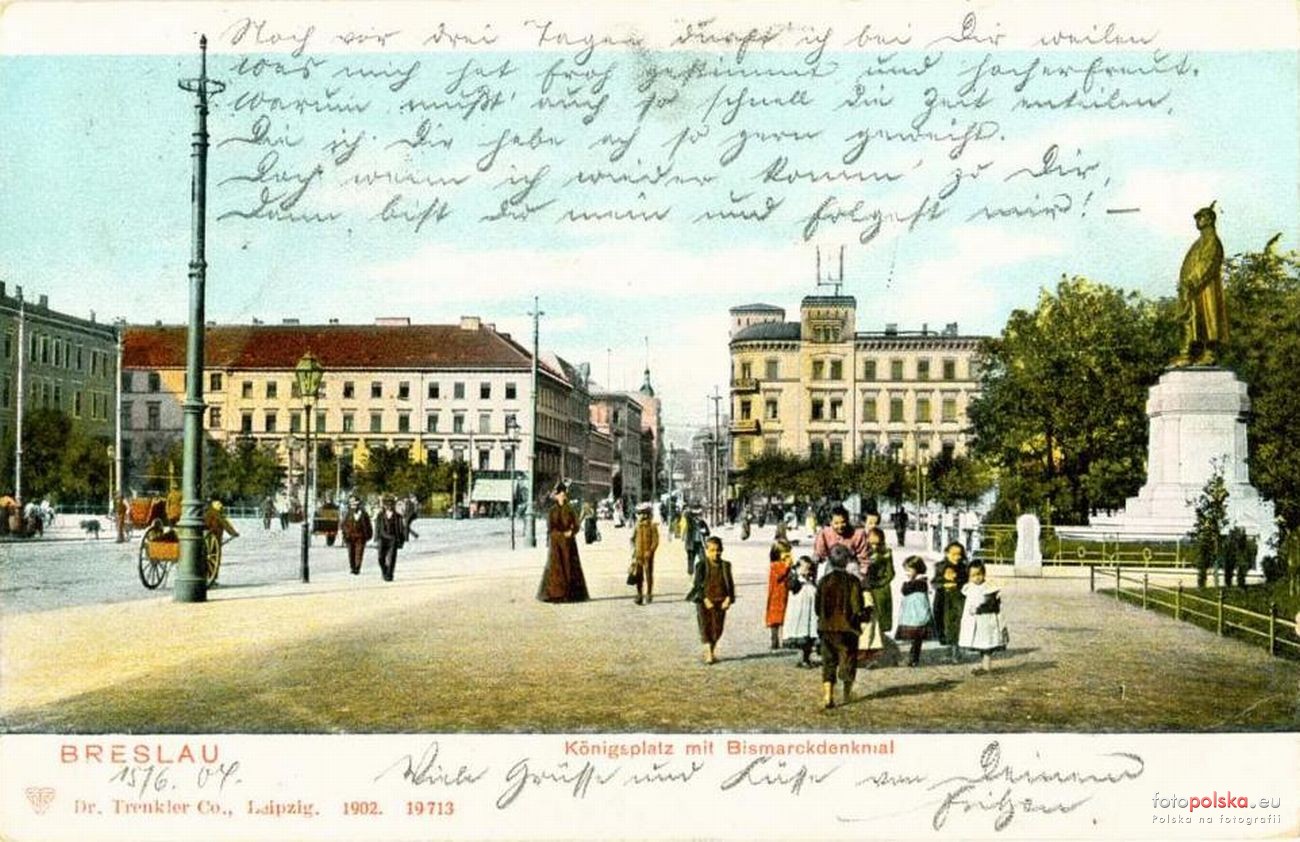 Noch vor drei Tagen durft ich bei Dir weilen,
Was mich hat froh gestimmt und hocherfreut.
Warum mußt' auch so schnell die Zeit enteilen,
Die ich Dir habe ach so gern geweiht.
Doch wenn ich wieder komm' zu Dir,
Dann bist du mein und folgest mir! —
BRESLAU
Königsplatz mit Bismarckdenkmal
15/6. 04.
Viele Grüsse und Küsse von Deinem
Fritzen.
Dr. Trenkler Co., Leipzig. 1902. 19713
fotopolska.eu
Polska na fotografii